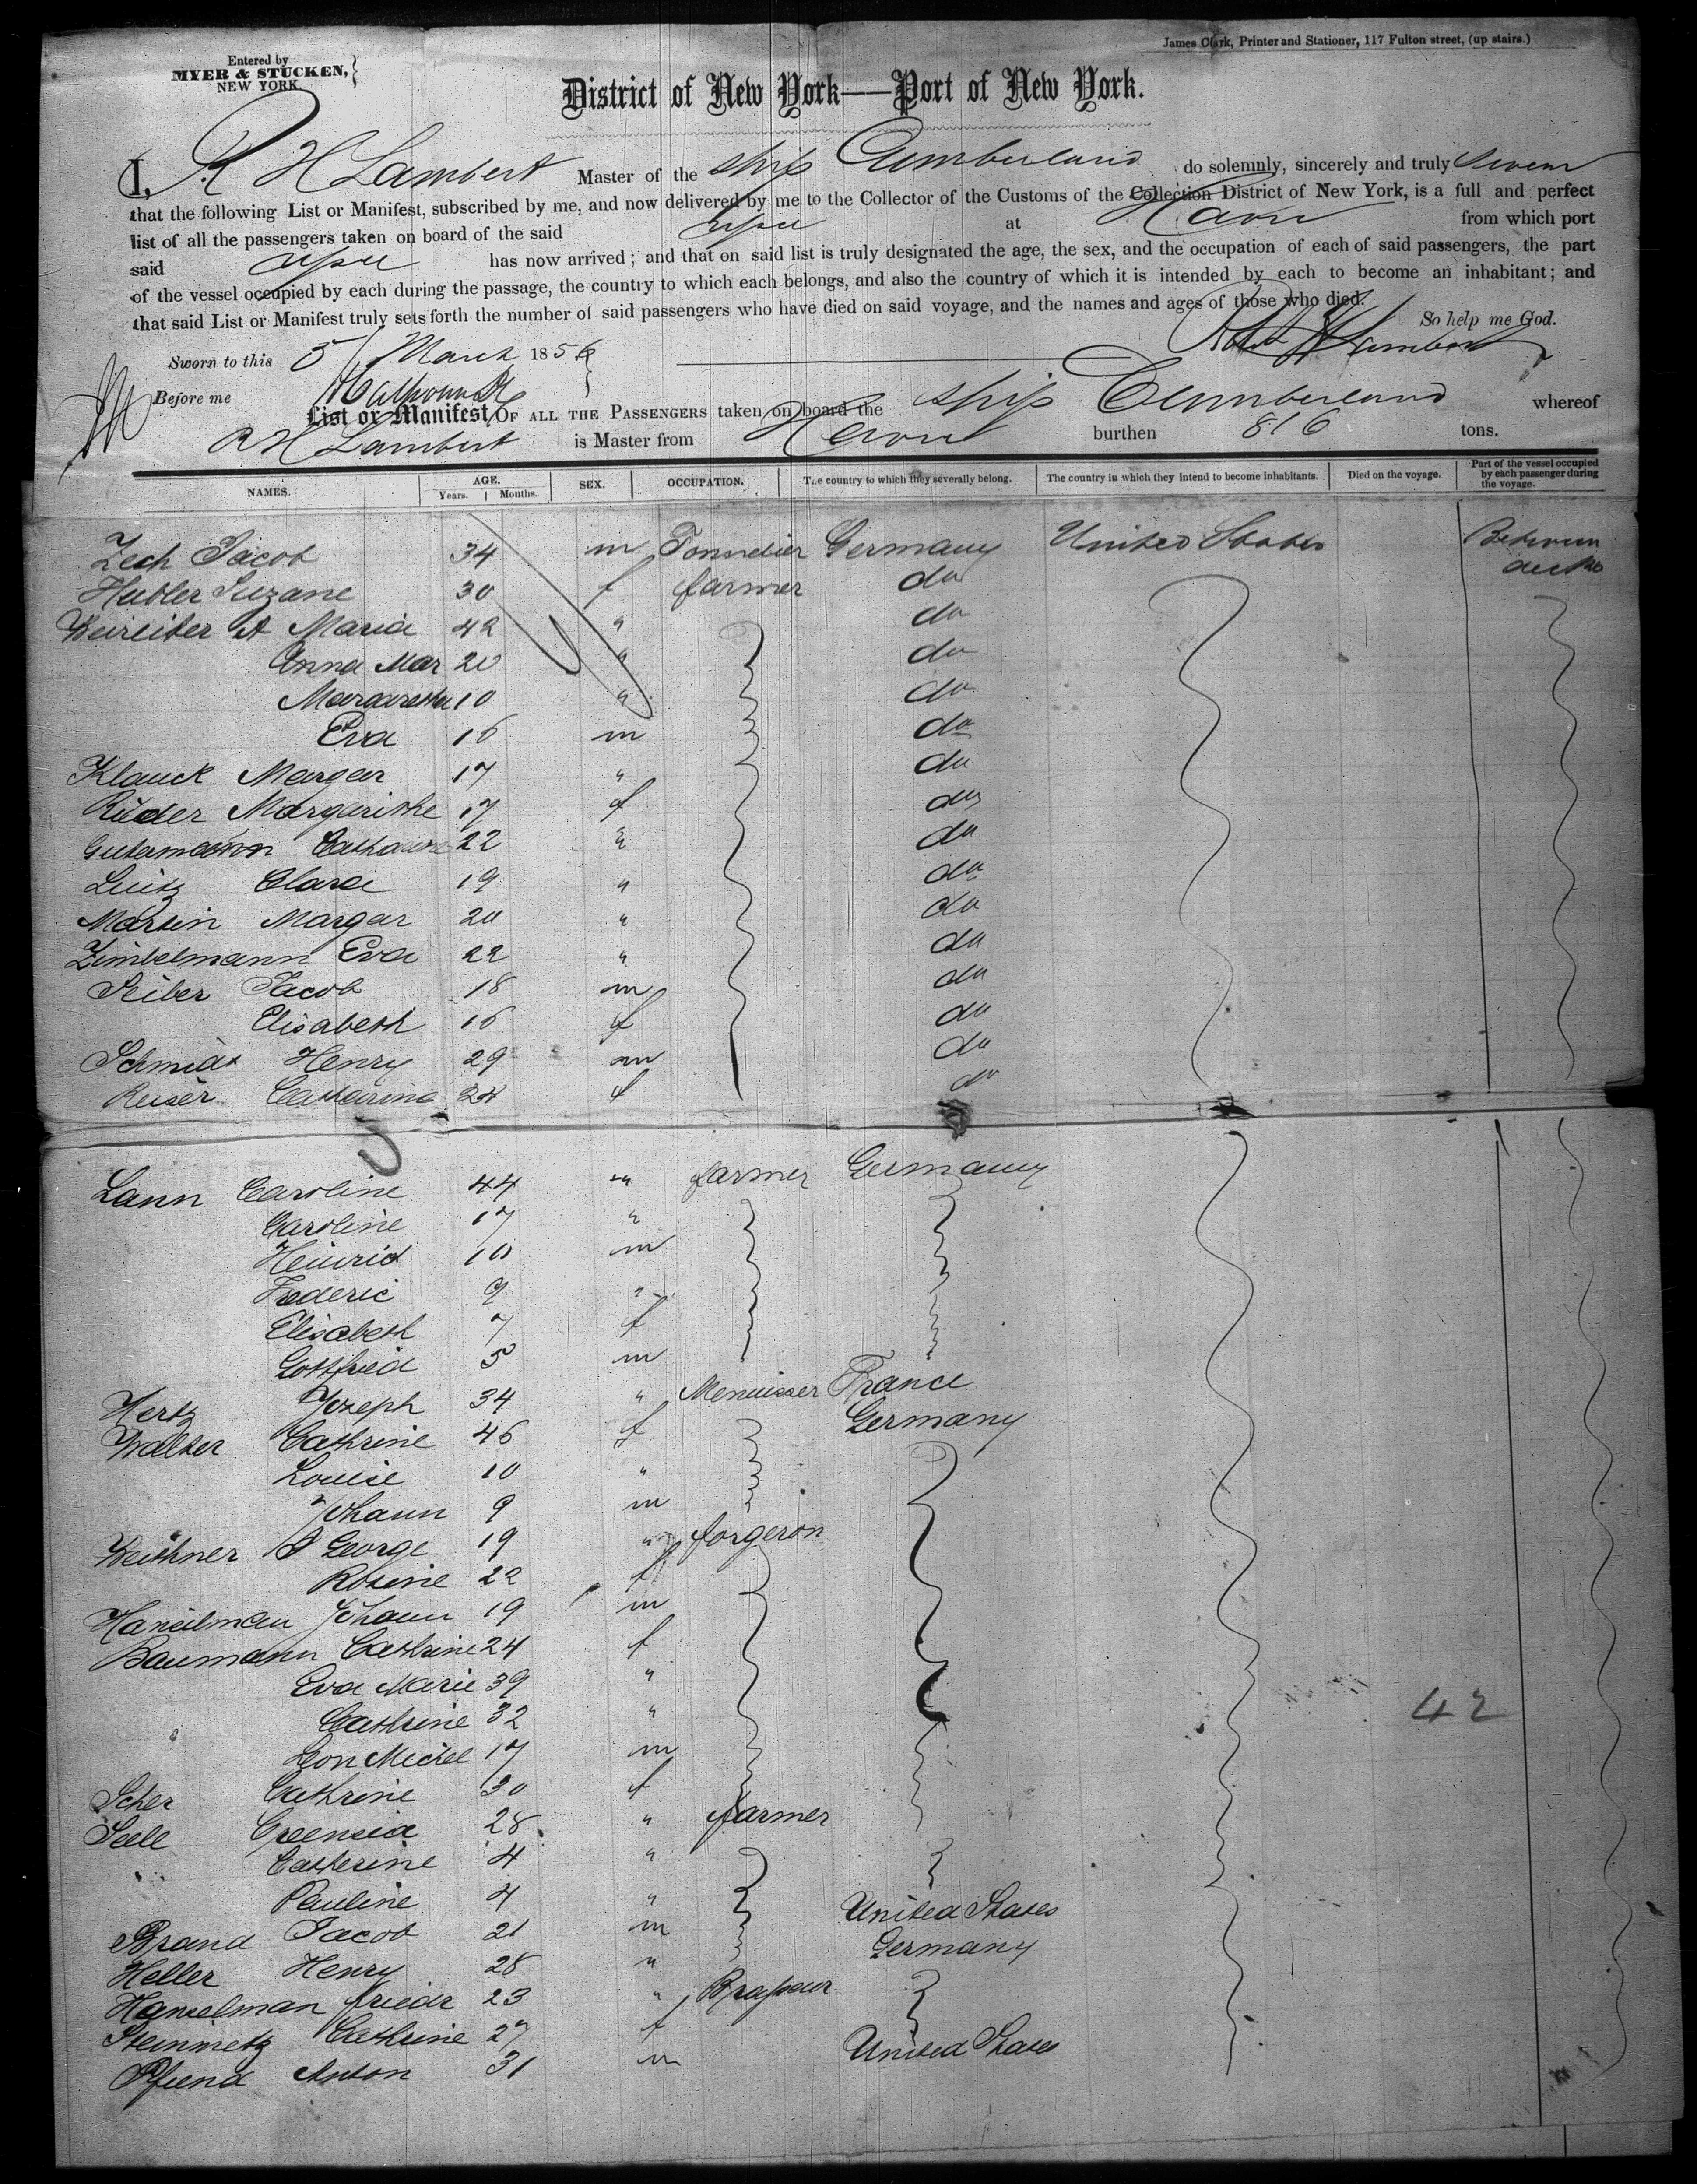 James Clark, Printer and Stationer, 117 Fulton street, (up stairs.)
Entered by
MYER & STUCKEN,
NEW YORK.
District of New York—Port of New York.
I, R H Lambert Master of the ship Cumberland do solemnly, sincerely and truly swear
that the following List or Manifest, subscribed by me, and now delivered by me to the Collector of the Customs of the Collection District of New York, is a full and perfect
list of all the passengers taken on board of the said ship at Havre from which port
said ship has now arrived; and that on said list is truly designated the age, the sex, and the occupation of each of said passengers, the part
of the vessel occupied by each during the passage, the country to which each belongs, and also the country of which it is intended by each to become an inhabitant; and
that said List or Manifest truly sets forth the number of said passengers who have died on said voyage, and the names and ages of those who died.
So help me God.
Robt H Lambert
Sworn to this 5 March 1856
Before me
List or Manifest OF ALL THE PASSENGERS taken on board the ship Cumberland whereof
R H Lambert is Master from Havre burthen 816 tons.
NAMES. AGE. Years. Months. SEX. OCCUPATION. The country to which they severally belong. The country in which they intend to become inhabitants. Died on the voyage. Part of the vessel occupied by each passenger during the voyage.
Zech Jacob 34 m Tonnelier Germany United States Between decks
Hubler Suzane 30 f farmer do
Weireiter A Maria 42 " do
Anna Mar 20 " do
Margaretha 10 " do
Eva 16 m do
Klauck Margar 17 " do
Rüder Margarithe 17 f do
Gutamann 22 " do
Luitz Clara 19 " do
Martin Margar 20 " do
Zimbelmann Eva 22 " do
Seiber Jacob 18 m do
Elisabeth 16 f do
Schmidt Henry 29 m do
Reiser Catharina 24 f do
Lann Caroline 44 " farmer Germany
Caroline 17 "
Heinrich 10 m
Frederic 9 "
Elisabeth 7 f
Gottfried 5 m
Hertz Joseph 34 " Menuisser France
Walter Cathrine 46 f Germany
Louise 10 "
Johann 9 m
Weithner A George 19 " forgeron
Rosine 22 f
Hanselman Johann 19 m
Baumann Cathrine 24 f
Eva Marie 39 "
Cathrine 32 "
Leon Michel 17 m
42
Scher Cathrine 30 f
Seele 28 " farmer
Catherine 4 "
Pauline 4 " United States
Brand Jacob 21 m Germany
Heller Henry 28 "
Hanselman friedr 23 " Brasseur
Steinmetz Cathrine 27 f
Pfiend Anton 31 m United States